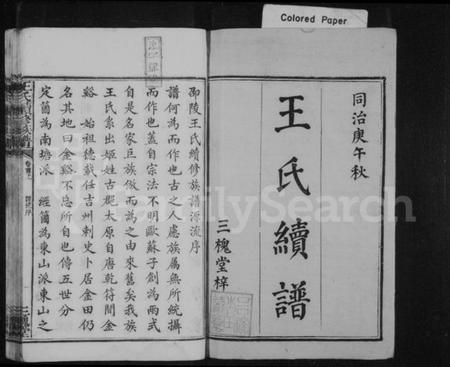 Colored Paper
同治庚午秋
王氏續譜
三槐堂梓
邵陵王氏續修族譜源流序
譜何為而作也古之人慮族属無所統攝
而作也蓋自宗法不明歐蘇子創為兩式
自是名家巨族倣而為之由來舊矣我族
王氏系出姬姓古梶太原自唐乾符間金
谿 始祖德載任吉州刺史卜居金田仍
名其地曰金谿不忘所自也傳五世分
定箇為南塘派 經箇為東山派東山之
FamilySearch